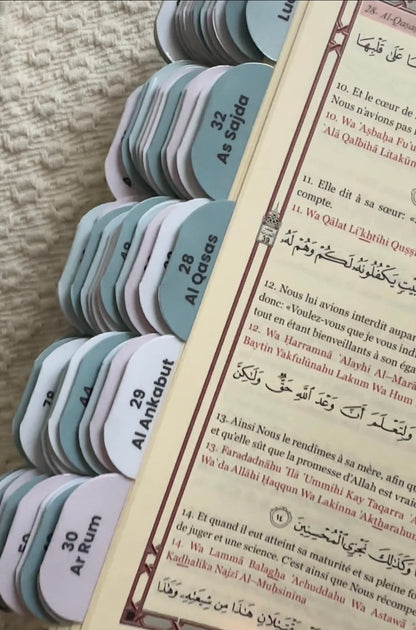 Lu
32
As Sajda
28
Al Qasas
29
Al Ankabut
30
Ar Rum
28- Al-Qaṣa
عَلَىٰ قَلْبِهَا
10. Et le cœur de
Nous n'avions pas
10. Wa 'Aṣbaḥa Fu'u
'Alá Qalbihā Litakūn
11. Elle dit à sa sœur: «
compte.
11. Wa Qālat Li'khtihi Quṣṣ
يَكْفُلُونَهُ لَكُمْ وَهُمْ لَهُ
12. Nous lui avions interdit aupar
donc: «Voulez-vous que je vous ind
tout en étant bienveillants à son éga
12. Wa Ḥarramnā `Alayhi Al-Mar
Baytin Yakfulūnahu Lakum Wa Hum
وَلِتَعْلَمَ أَنَّ وَعْدَ اللَّهِ حَقٌّ وَلَٰكِنَّ
13. Ainsi Nous le rendîmes à sa mère, afin qu
et qu'elle sût que la promesse d'Allah est vrai
13. Faradadnāhu 'Ilá 'Ummihi Kay Taqarra
Wa`da Allāhi Ḥaqqun Wa Lakinna 'Aktharahum
وَكَذَٰلِكَ نَجْزِي الْمُحْسِنِينَ ١٤
14. Et quand il eut atteint sa maturité et sa pleine fo
de juger et une science. C'est ainsi que Nous récomp
14. Wa Lammā Balagha 'Achuddahu Wa Astawá
Kadhalika Najzī Al-Muḥsinīna
يَقْتَتِلَانِ هَٰذَا مِن شِيعَتِهِ وَهَٰذَا